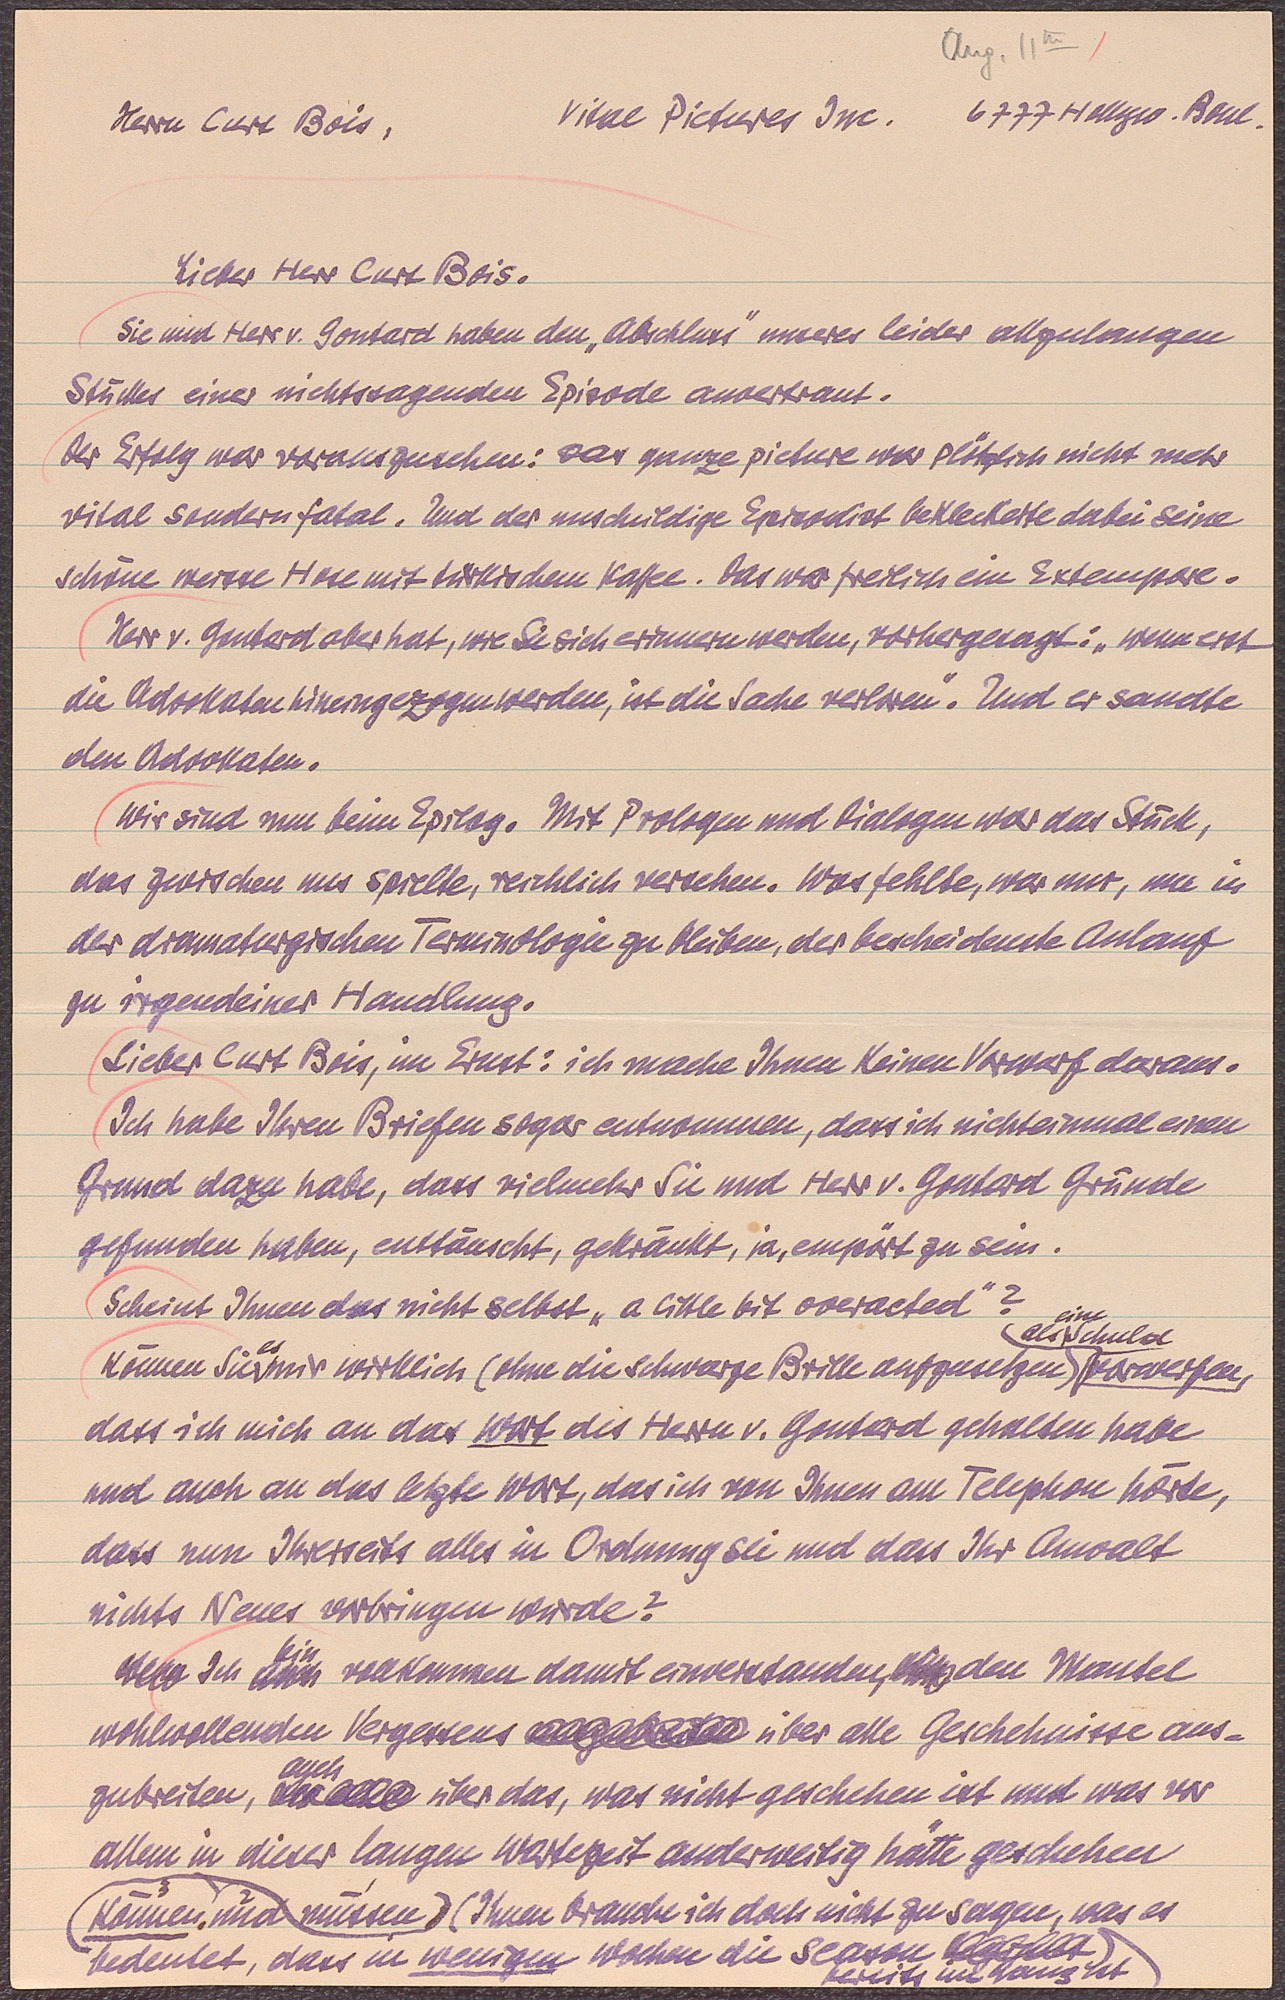 Aug. 11th
Herrn Curt Bois, Vital Pictures Inc. 6777 Hollyw. Boul.
Lieber Herr Curt Bois.
Sie und Herr v. Gontard haben den „Abschluss" unseres leider allzulangen
Stückes einer nichtssagenden Episode anvertraut.
Der Erfolg war vorauszusehen: das ganze picture war plötzlich nicht mehr
vital sondern fatal. Und der unschuldige Episodist bekleckerte dabei seine
schöne weisse Hose mit türkischem Kaffee. Das war freilich ein Extempore.
Herr v. Gontard aber hat, wie Sie sich erinnern werden, vorhergesagt: „wenn erst
die Advokaten hineingezogen werden, ist die Sache verloren". Und er sandte
den Advokaten.
Wir sind nun beim Epilog. Mit Prologen und Dialogen war das Stück,
das zwischen uns spielte, reichlich versehen. Was fehlte, war nur, um in
der dramaturgischen Terminologie zu bleiben, der bescheidenste Anlauf
zu irgendeiner Handlung.
Lieber Curt Bois, im Ernst: ich mache Ihnen keinen Vorwurf daraus.
Ich habe Ihren Briefen sogar entnommen, dass ich nichteinmal einen
Grund dazu habe, dass vielmehr Sie und Herr v. Gontard Gründe
gefunden haben, enttäuscht, gekränkt, ja, empört zu sein.
Scheint Ihnen das nicht selbst „a little bit overacted"?
als eine Schuld
Können Sie es mir wirklich (ohne die schwarze Brille aufzusetzen) vorwerfen,
dass ich mich an das Wort des Herrn v. Gontard gehalten habe
und auch an das letzte Wort, das ich von Ihnen am Telephon hörte,
dass nun Ihrerseits alles in Ordnung sei und dass Ihr Anwalt
nichts Neues vorbringen würde?
Ich bin vollkommen damit einverstanden, den Mantel
wohlwollenden Vergessens über alle Geschehnisse aus-
zubreiten, auch über das, was nicht geschehen ist und was vor
allem in dieser langen Wartezeit anderweitig hätte geschehen
können und müssen (Ihnen brauche ich doch nicht zu sagen, was es
bedeutet, dass in wenigen Wochen die season
bereits im Gang ist